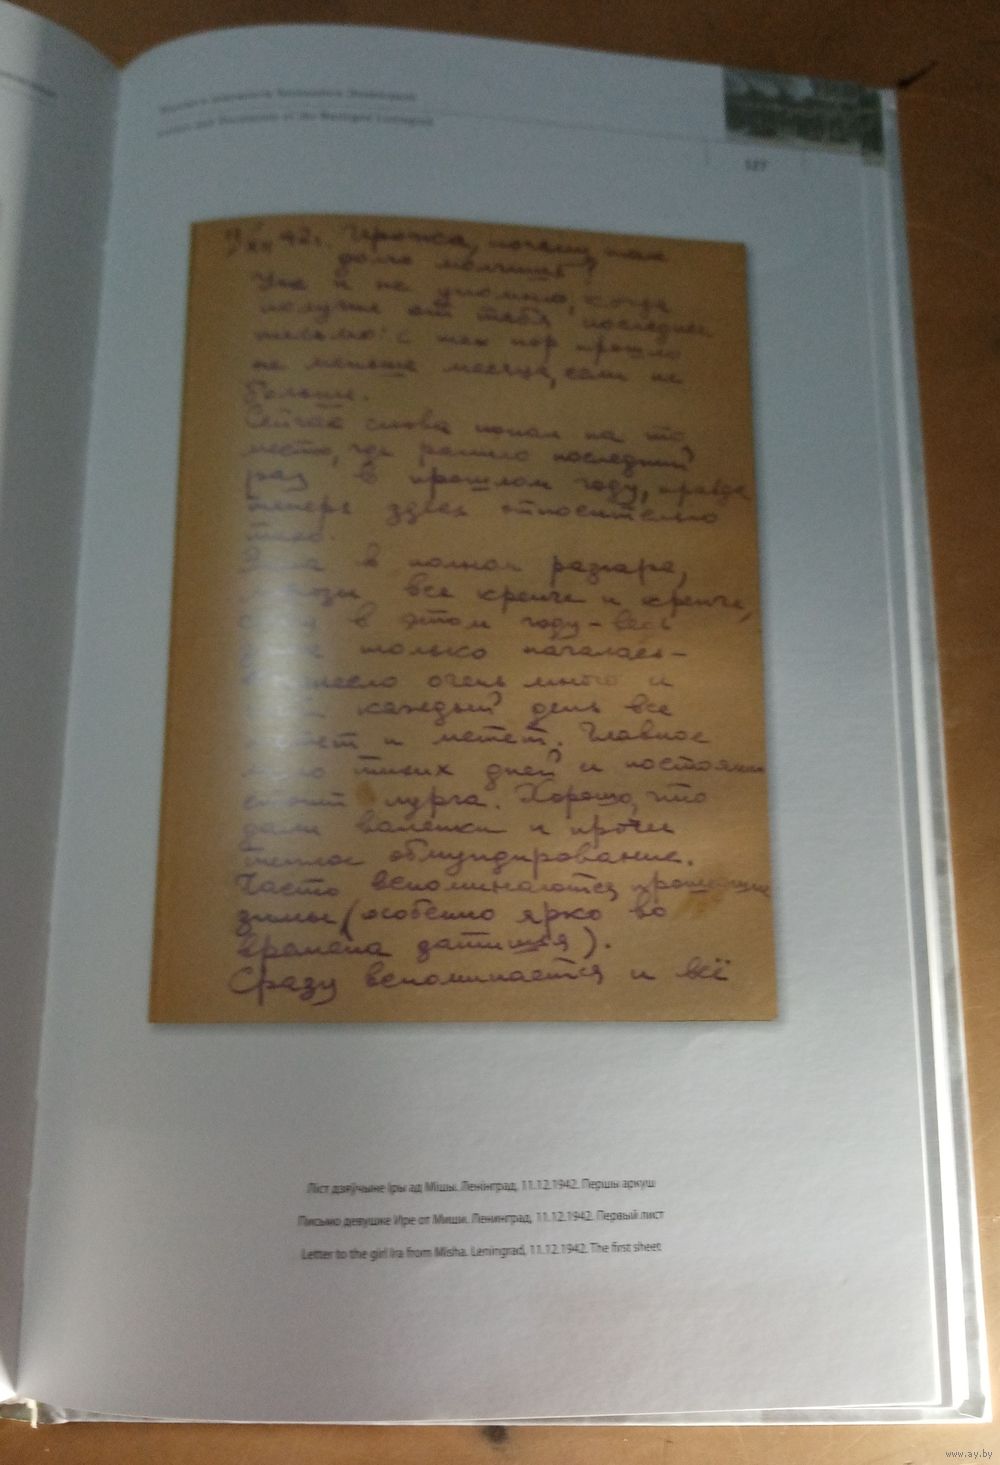 Letters and Documents of the Besieged Leningrad
127
11/XII 42г. Ирочка, почему так
долго молчишь?
Уже и не упомню, когда
получил от тебя последнее
письмо: с тех пор прошло
не меньше месяца, если не
больше.
Сейчас снова попал на то
место, где ранило последний
раз в прошлом году, правда
теперь здесь относительно
тихо.
Зима в полном разгаре,
морозы все крепче и крепче,
в этом году - весь
только началась -
очень много и
каждый день все
метет и метет. Главное
мало тихих дней и постоянно
стоит пурга. Хорошо, что
дали валенки и прочее
теплое обмундирование.
Часто вспоминаются прошедшие
зимы (особенно ярко во
времена затишья).
Сразу вспоминается и всё
Ліст дзяўчыне Іры ад Мішы. Ленінград, 11.12.1942. Першы аркуш
Письмо девушке Ире от Миши. Ленинград, 11.12.1942. Первый лист
Letter to the girl Ira from Misha. Leningrad, 11.12.1942. The first sheet
www.ay.by